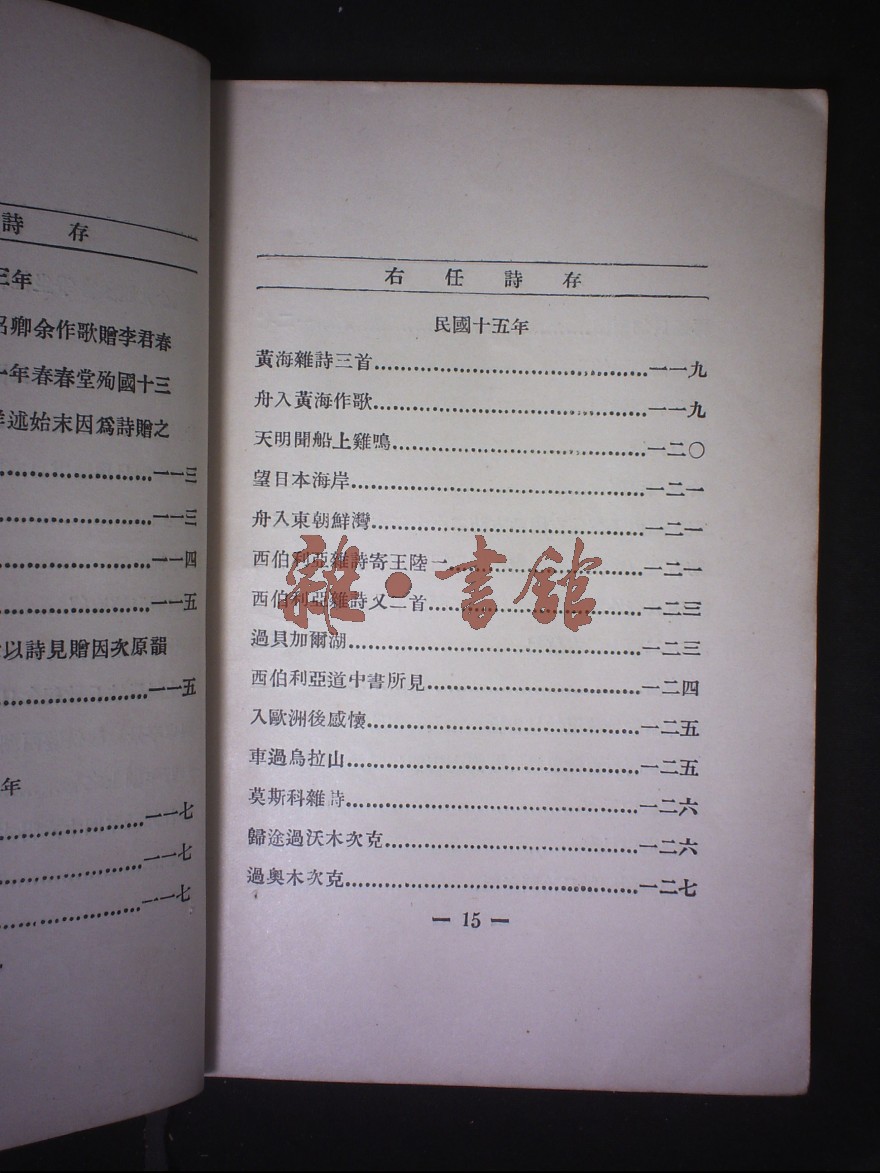 詩存
三年
卿余作歌贈李君春
年春春堂殉國十三
述始末因爲詩贈之
……一一三
……一一三
……一一四
……一一五
以詩見贈因次原韻
……一一五
年
……一一七
……一一七
……一一七
右任詩存
民國十五年
黃海雜詩三首……一一九
舟入黃海作歌……一一九
天明聞船上雞鳴……一二〇
望日本海岸……一二一
舟入東朝鮮灣……一二一
西伯利亞雜詩寄王陸一……一二一
西伯利亞雜詩又二首……一二三
過貝加爾湖……一二三
西伯利亞道中書所見……一二四
入歐洲後感懷……一二五
車過烏拉山……一二五
莫斯科雜詩……一二六
歸途過沃木次克……一二六
過奧木次克……一二七
— 15 —
雜·書館